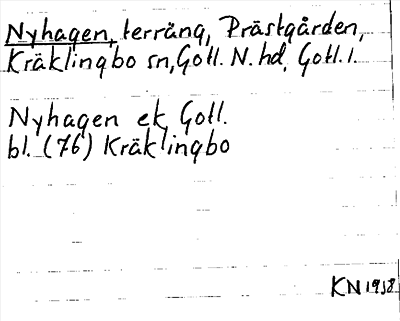 Nyhagen, terräng, Prästgården,
Kräklingbo sn, Gotl. N. hd, Gotl. l.
Nyhagen ek Gotl.
bl. (76) Kräklingbo
KN 1938